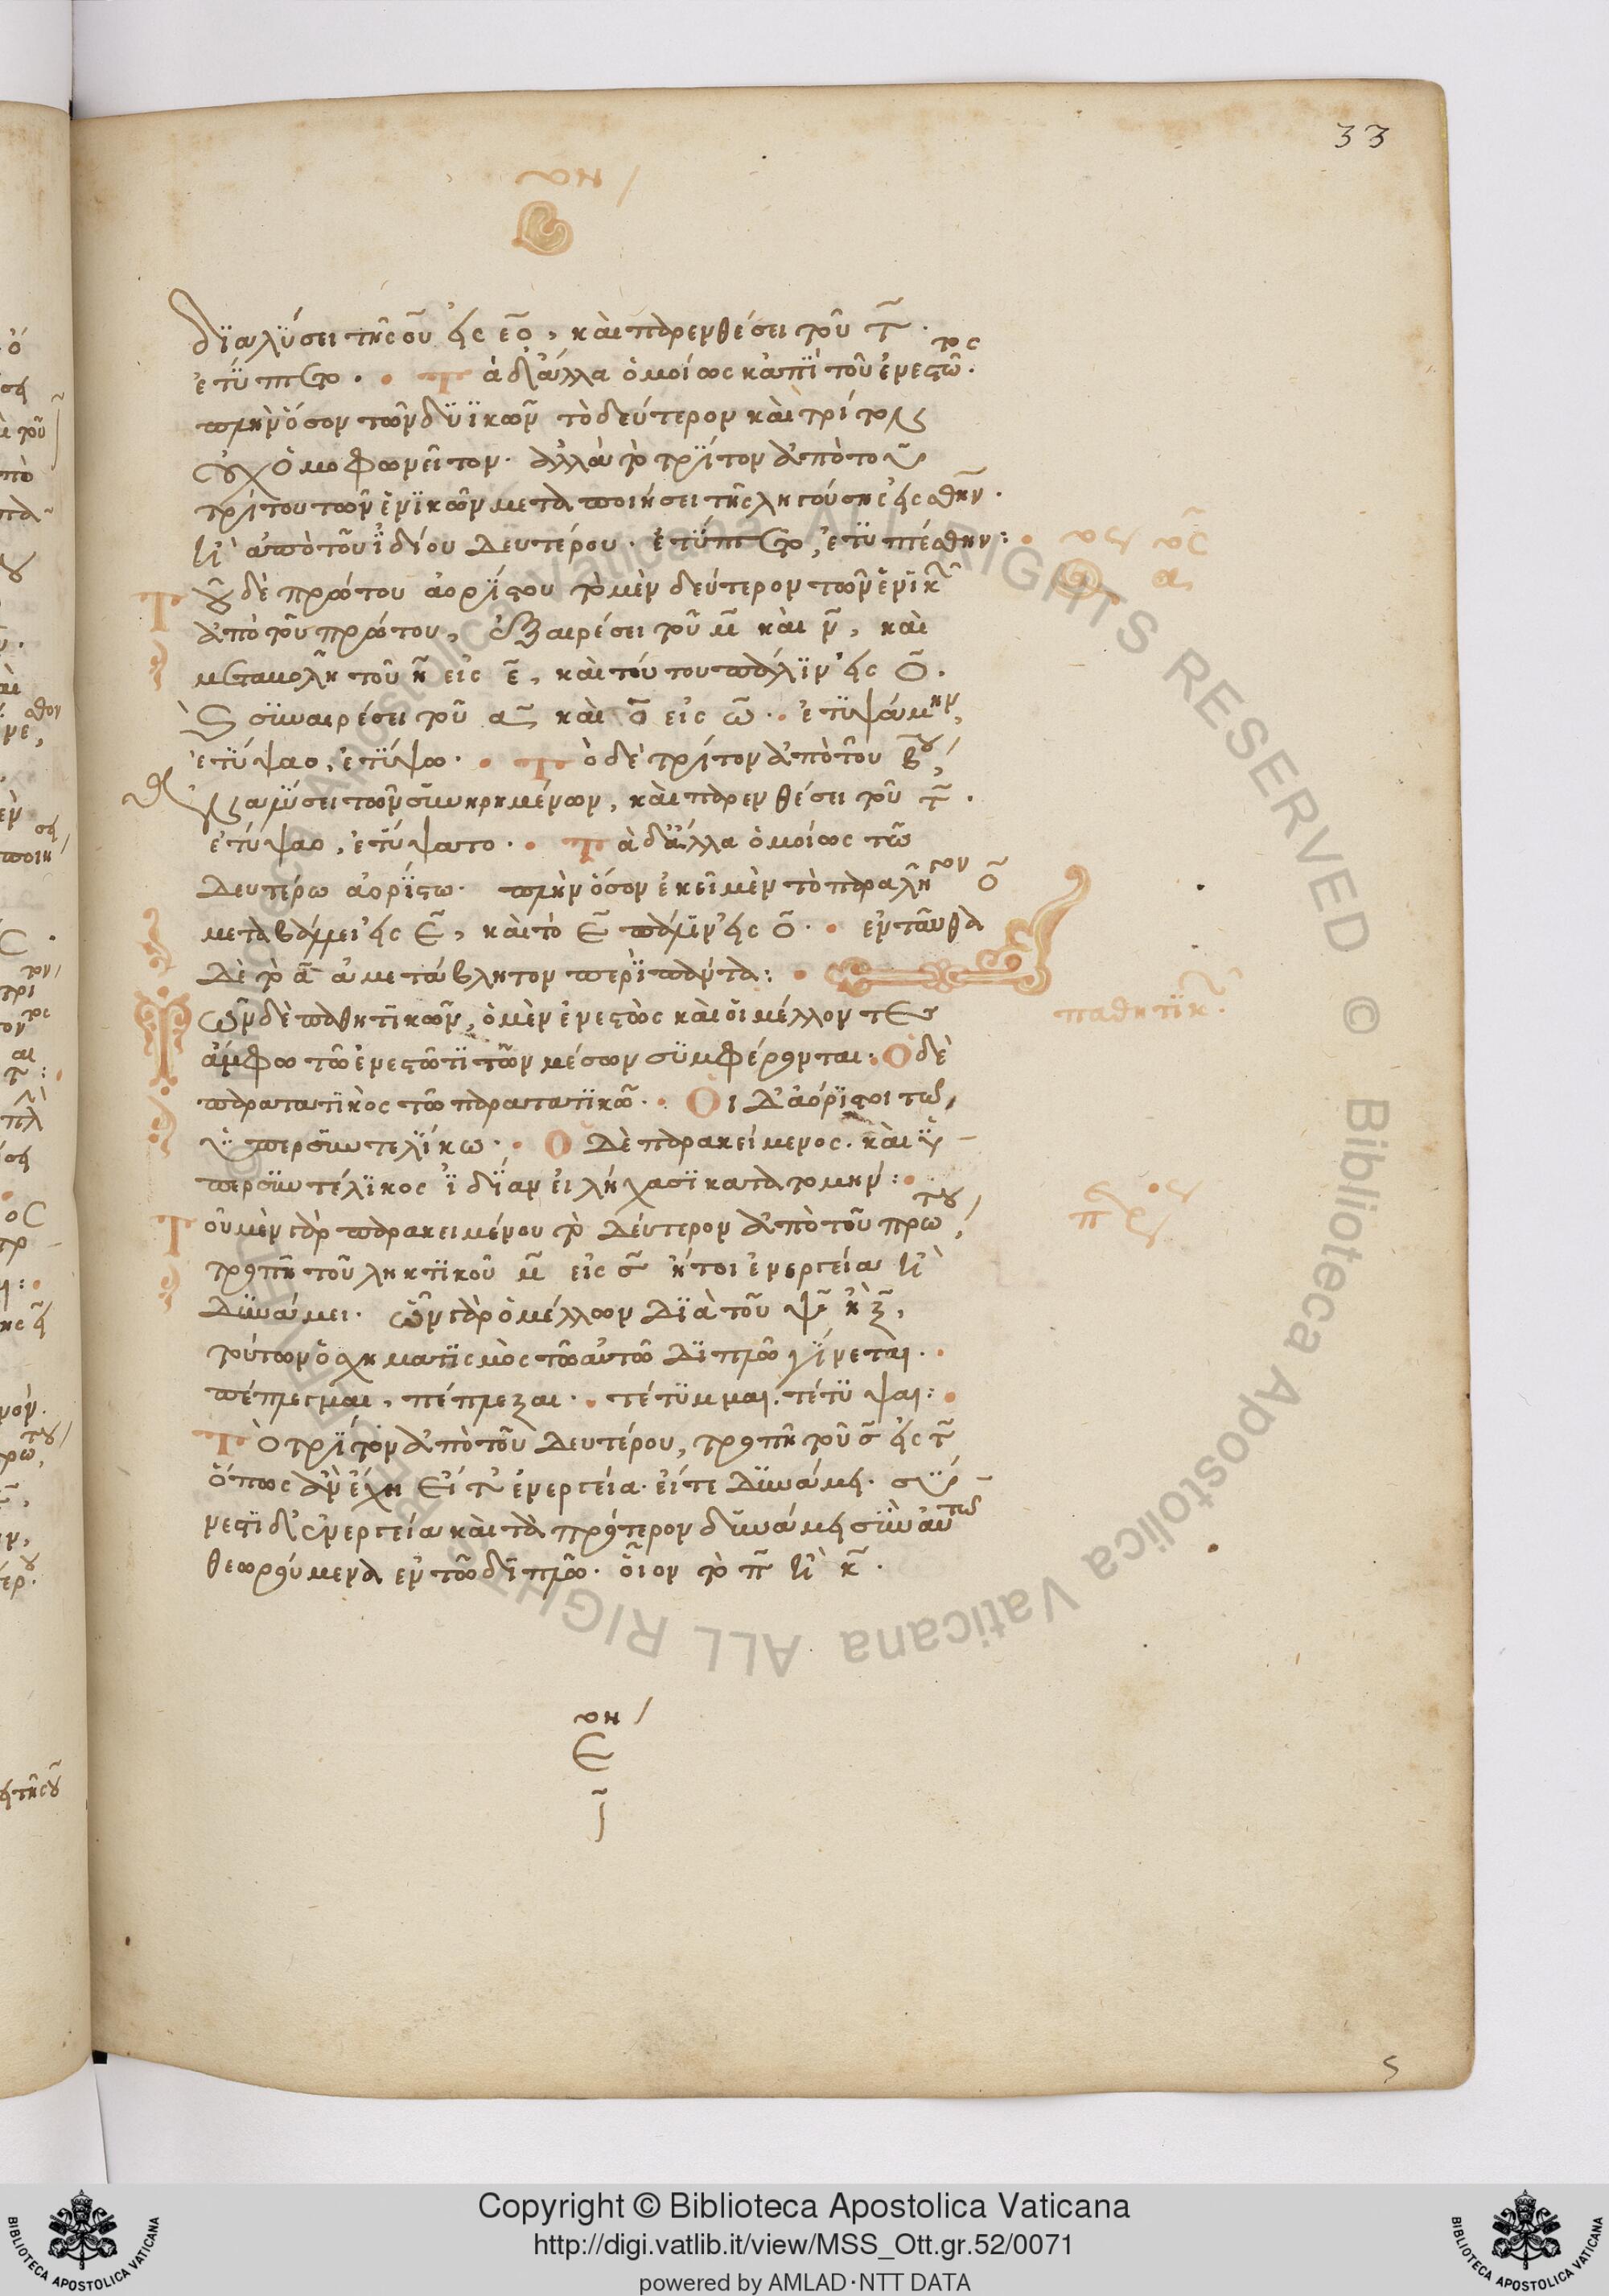 33
διαλύσει τῆς ου εἰς εο, καὶ παρενθέσει τοῦ τ.
ἐτύπετο. Τὰ δ' ἄλλα ὁμοίως κἀπὶ τοῦ ἐνεστῶτος.
πλὴν ὅσον τῶν δυϊκῶν τὸ δεύτερον καὶ τρίτον
οὐχ ὁμοφωνεῖτον. ἀλλὰ τὸ τρίτον ἀπὸ τοῦ
τρίτου τῶν ἑνικῶν μεταποιήσει τῆς ληγούσης εἰς σθην.
ἢ ἀπὸ τοῦ ἰδίου δευτέρου. ἐτύπετο, ἐτυπέσθην:
Τοῦ δὲ πρώτου ἀορίστου τὸ μὲν δεύτερον τῶν ἑνικῶν
ἀπὸ τοῦ πρώτου, ἐξαιρέσει τοῦ μ καὶ ν, καὶ
μεταβολῇ τοῦ η εἰς ε, καὶ τούτου πάλιν εἰς ο.
συναιρέσει τοῦ α καὶ ο εἰς ω. ἐτυψάμην,
ἐτύψαο, ἐτύψω. Τὸ δὲ τρίτον ἀπὸ τοῦ βου,
διαλύσει τῶν συνῃρημένων, καὶ παρενθέσει τοῦ τ.
ἐτύψαο, ἐτύψατο. Τὰ δ' ἄλλα ὁμοίως τῷ
δευτέρῳ ἀορίστῳ. πλὴν ὅσον ἐκεῖ μὲν τὸ παραλῆγον ο
μεταβάλλει εἰς ε, καὶ τὸ ε πάλιν εἰς ο. ἐνταῦθα
δὲ τὸ α ἀμετάβλητον περιπάντα:
Τῶν δὲ παθητικῶν, ὁ μὲν ἐνεστὼς καὶ οἱ μέλλοντες παθητικ
ἄμφω τῷ ἐνεστῶτι τῶν μέσων συμφέρονται: Ὁ δὲ
παρατατικὸς τῷ παρατατικῷ. Οἱ δ' ἀόριστοι τῷ
ὑπερσυντελίκῳ. Ὁ δὲ παρακείμενος. καὶ ὑ-
περσυντέλικος ἰδίαν εἰλήχασι κατατομήν:
Τοῦ μὲν γὰρ παρακειμένου τὸ δεύτερον ἀπὸ τοῦ πρώτου,
τροπῇ τοῦ ληκτικοῦ μ εἰς σ ἤτοι ἐνεργείᾳ ἢ
δυνάμει. ὧν γὰρ ὁ μέλλων διὰ τοῦ ψ ἢ ξ,
τούτων ὁ σχηματισμὸς τῷ αὐτῷ διπλῷ γίνεται.
πέπλεγμαι, πέπλεξαι. τέτυμμαι. τέτυψαι:
Τὸ τρίτον ἀπὸ τοῦ δευτέρου, τροπῇ τοῦ σ εἰς τ
ὅπως ἂν ἔχῃ εἴτ' ἐνεργείᾳ. εἴτε δυνάμει. συ-
νεστὶ δ' ἐνεργείᾳ καὶ τὰ πρότερον δυνάμει σὺν αὐτῷ
θεωρούμενα ἐν τῷ διπλῷ. οἷον τὸ π ἢ κ.
Copyright © Biblioteca Apostolica Vaticana
http://digi.vatlib.it/view/MSS_Ott.gr.52/0071
powered by AMLAD·NTT DATA